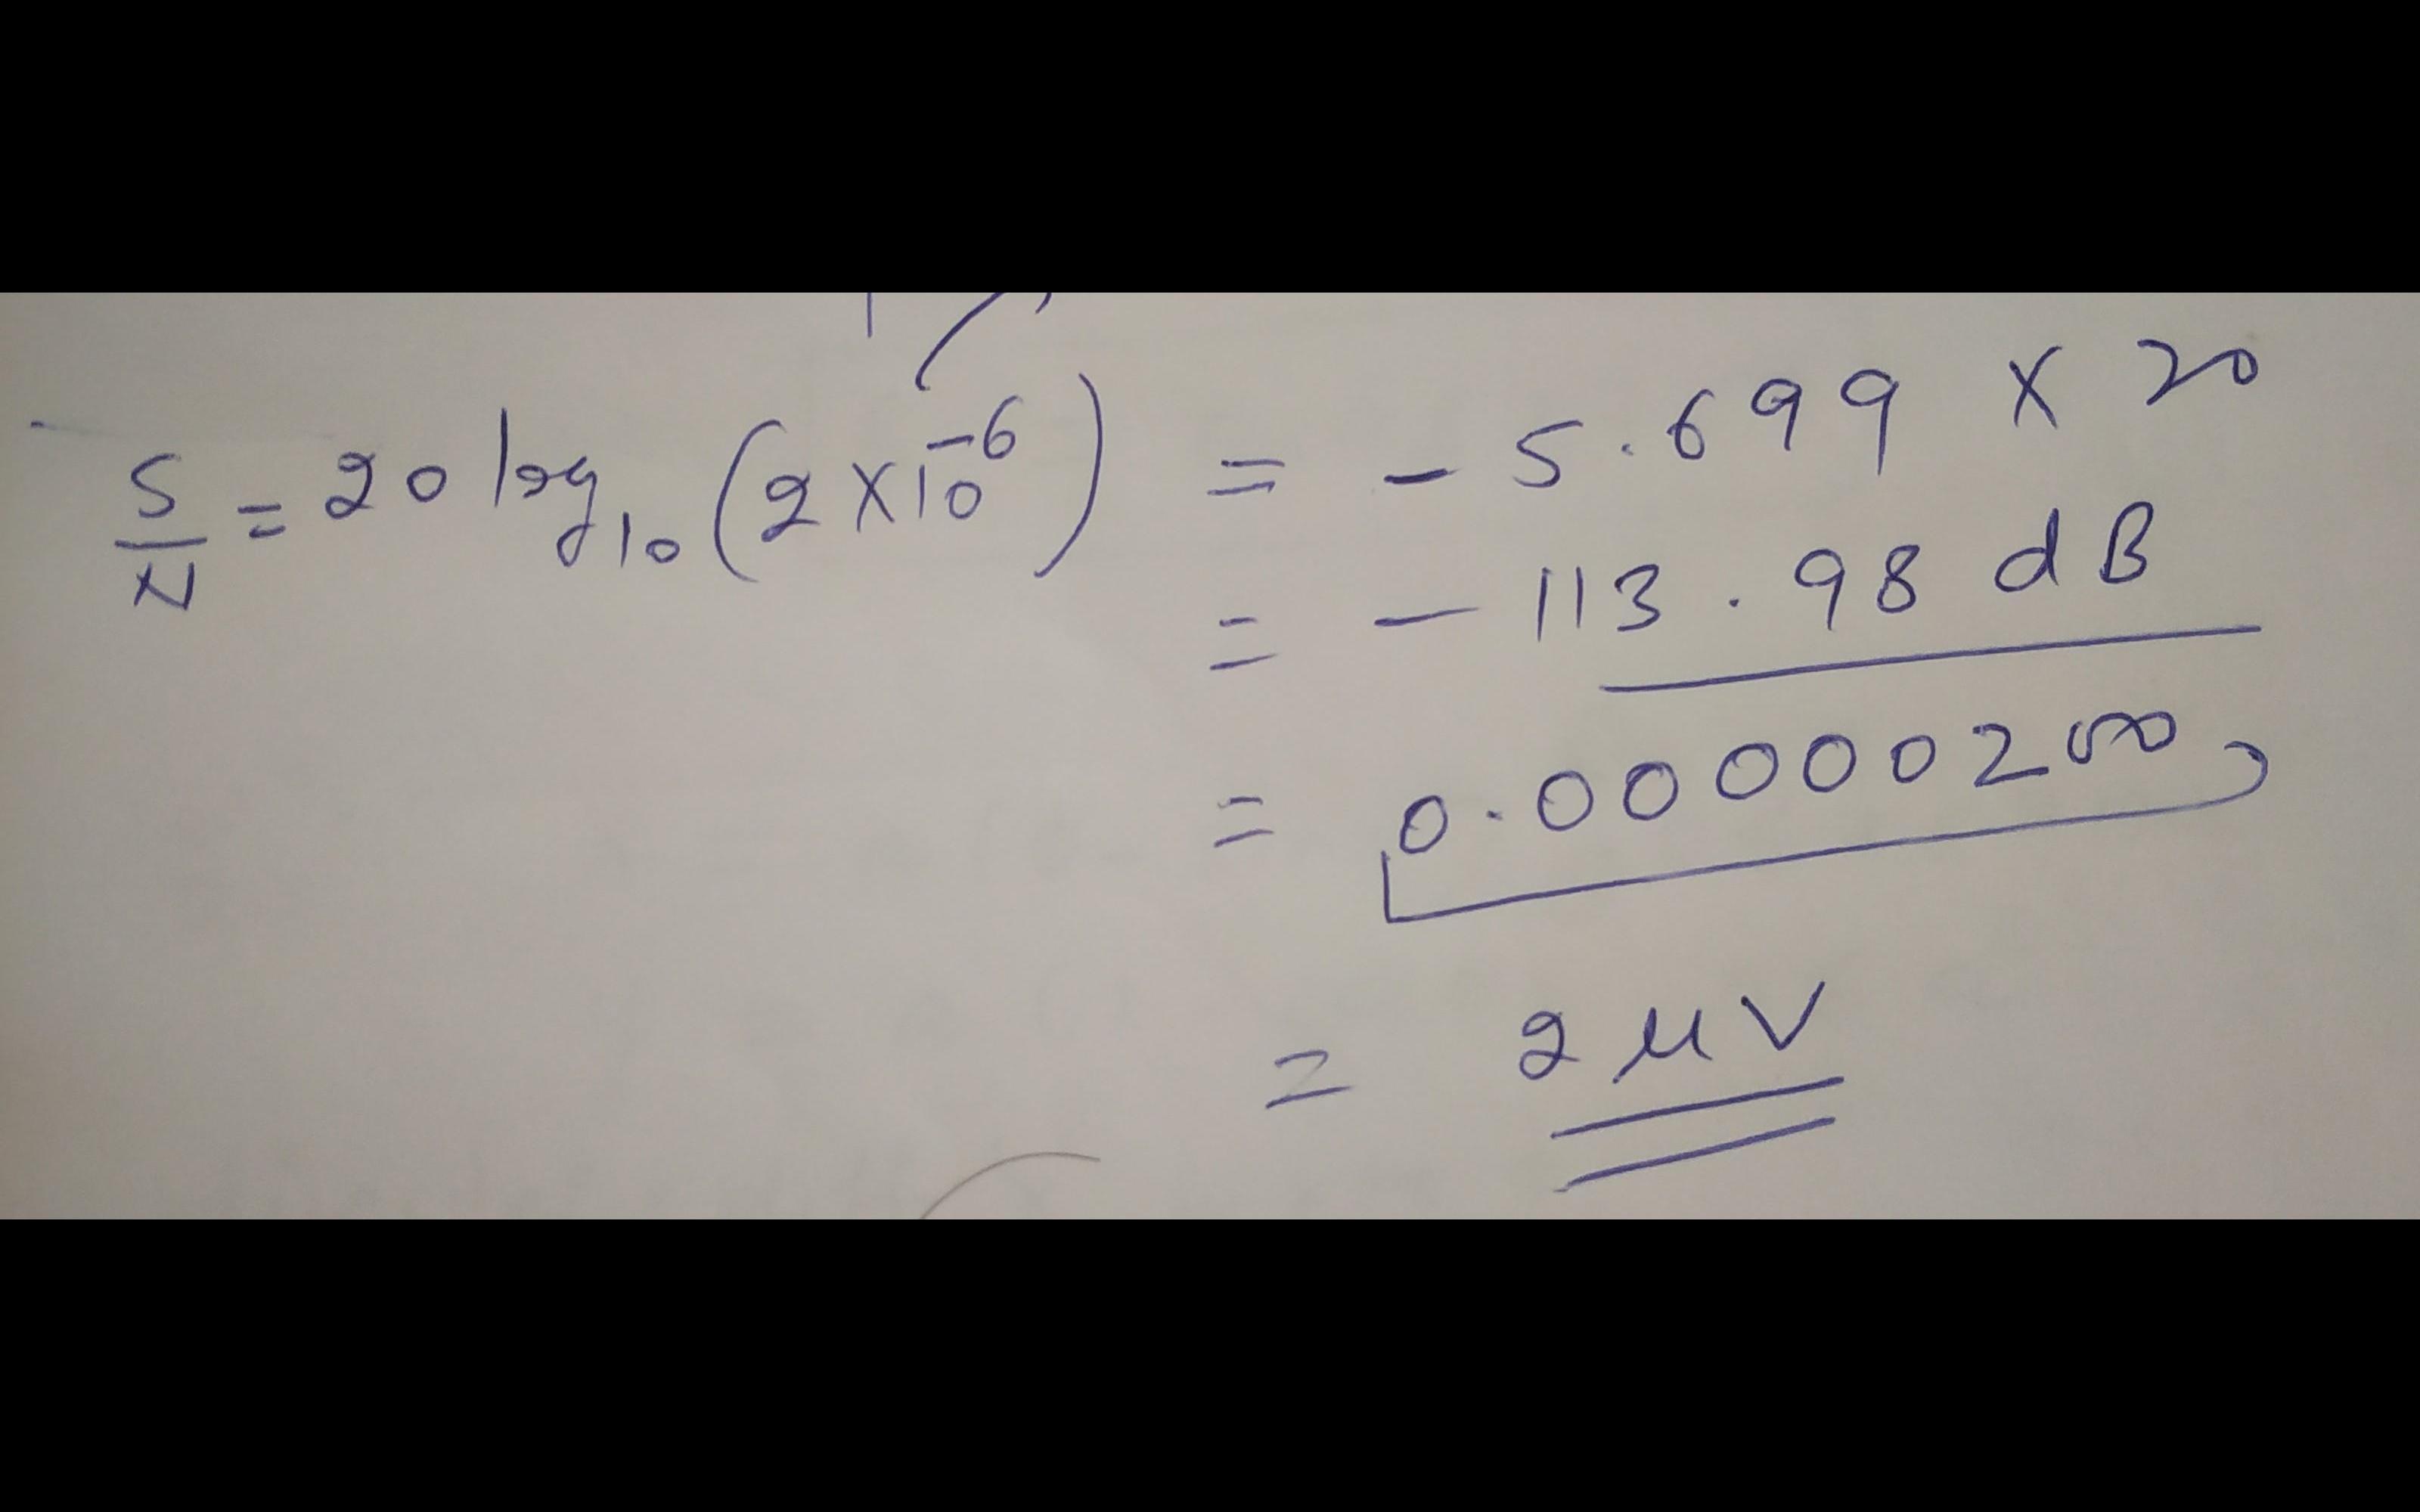 S/N = 20 log₁₀ (2 × 10⁻⁶) = - 5.699 × 20
= - 113.98 dB
= 0.00000200
= 2 μV